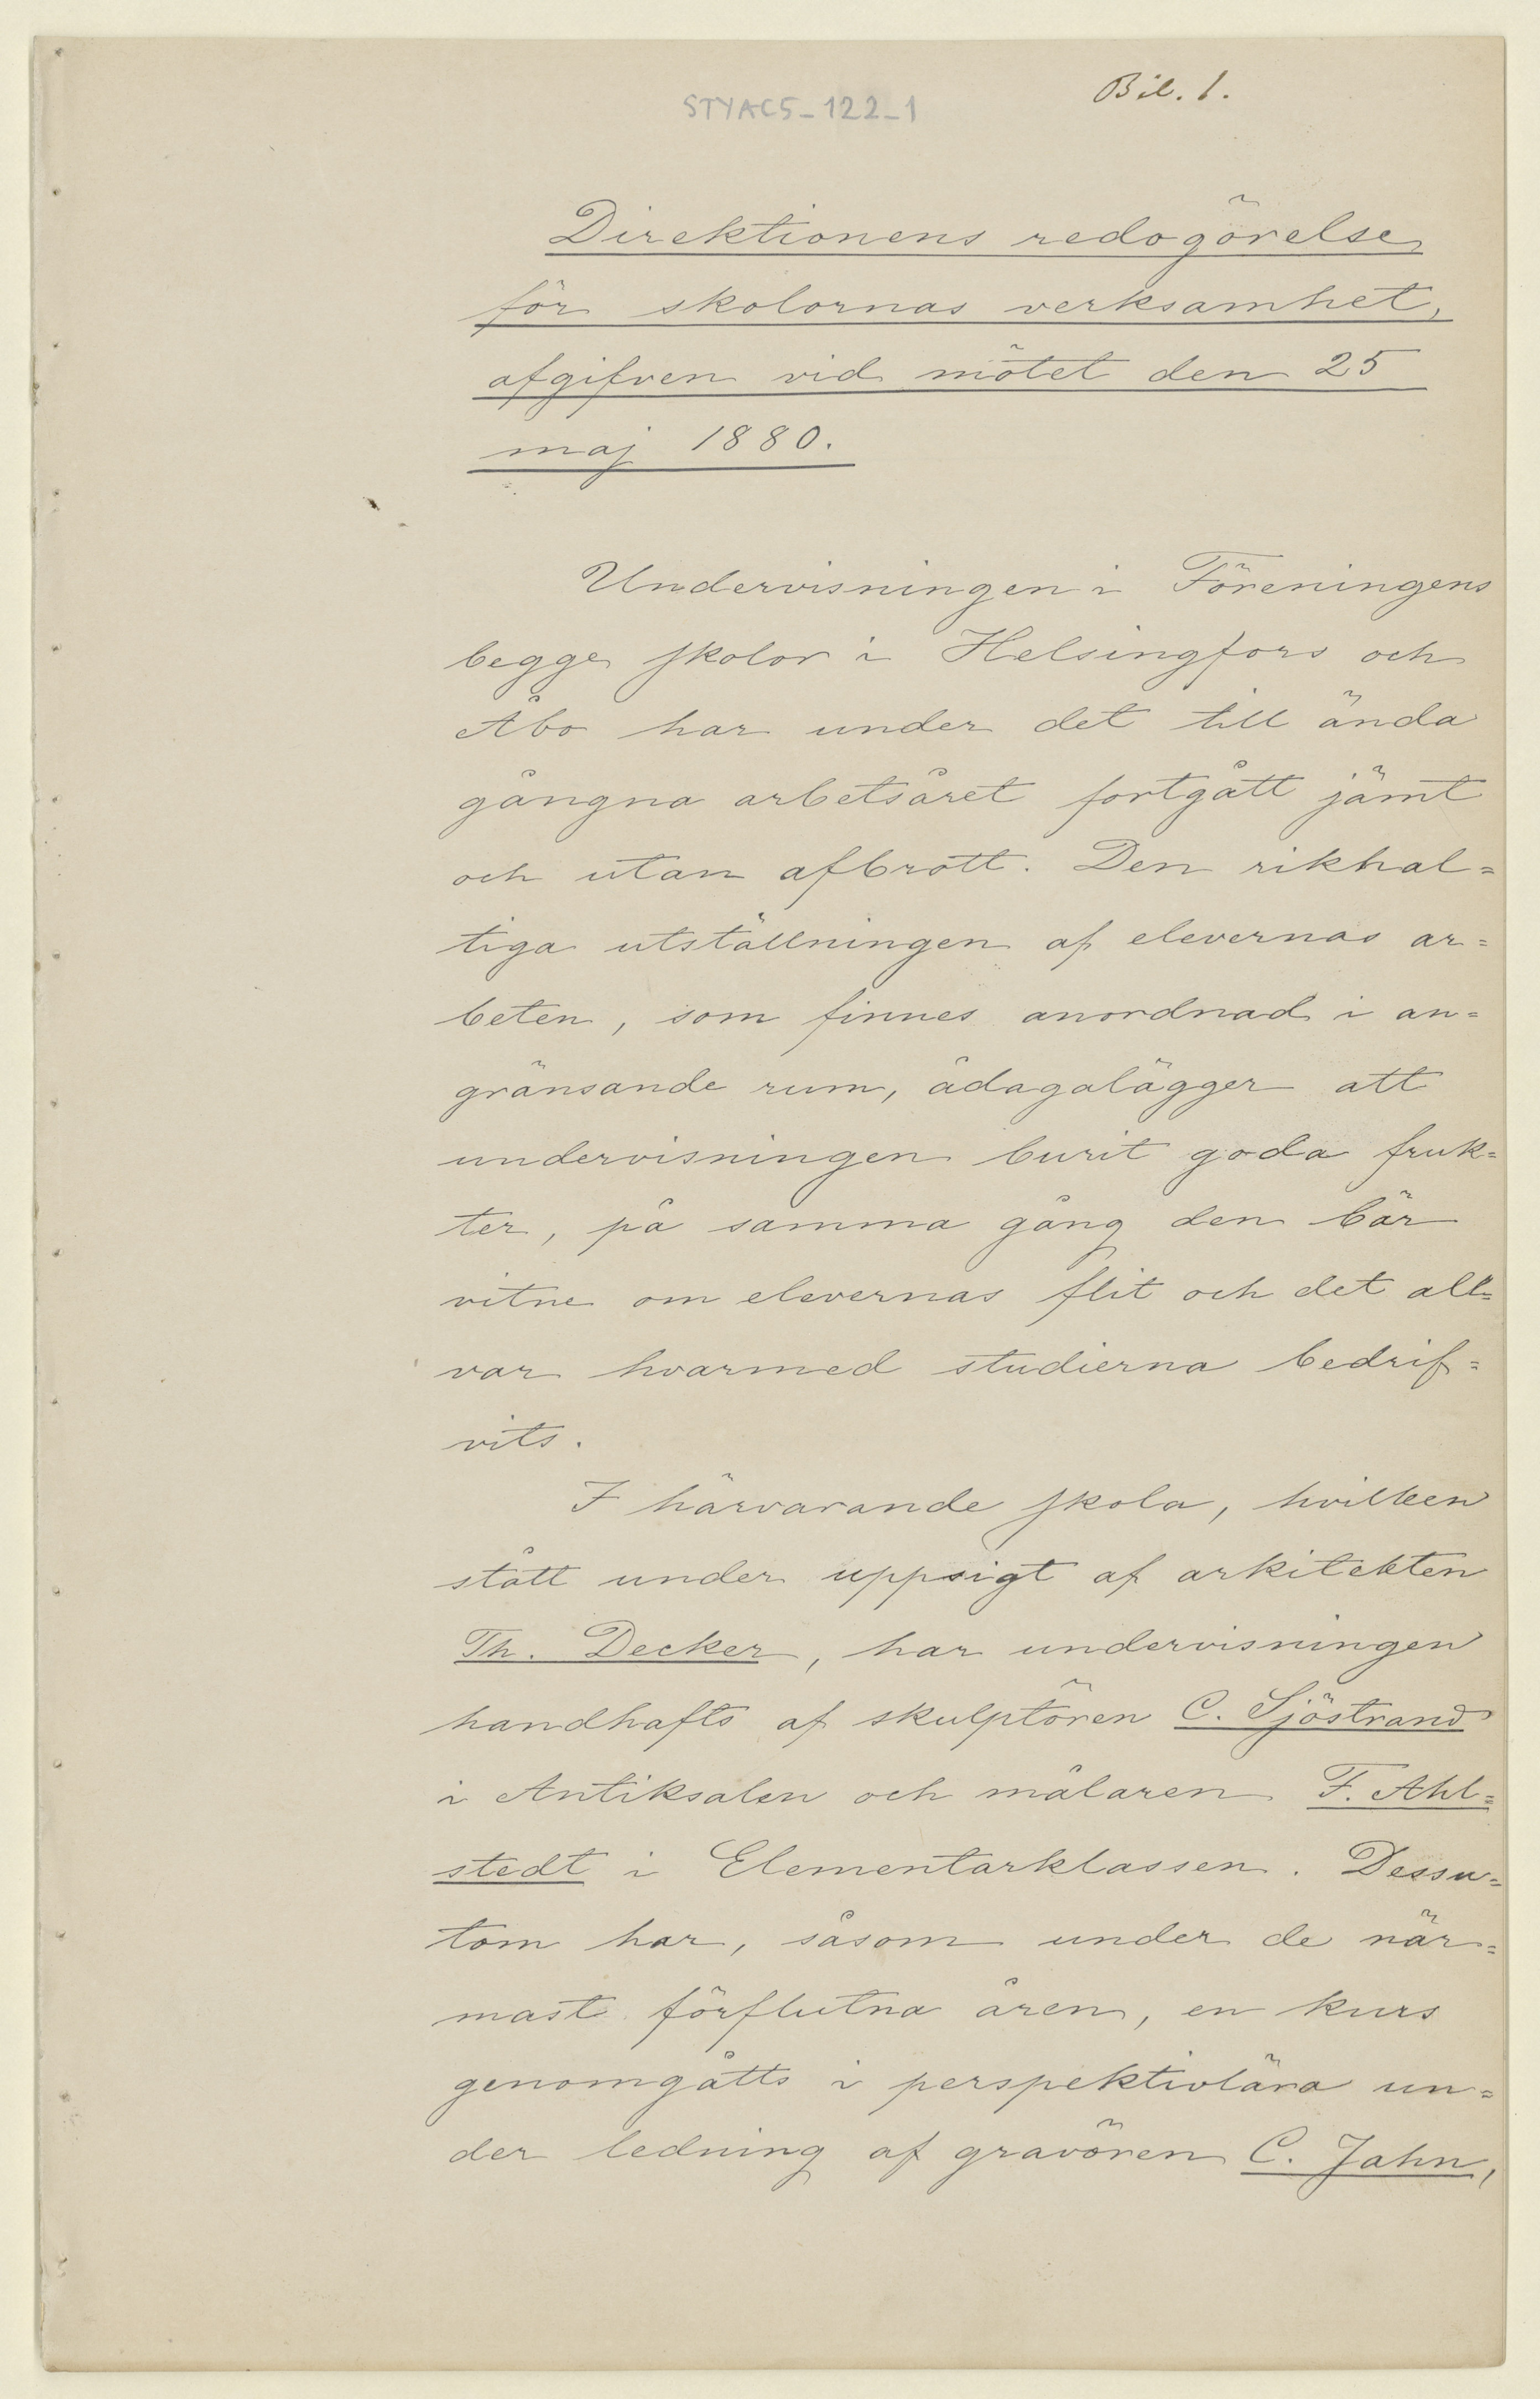 STYAC5_122_1
Bil. 1.
Direktionens redogörelse
för skolornas verksamhet,
afgifven vid mötet den 25
maj 1880.
Undervisningen i Föreningens
begge skolor i Helsingfors och
Åbo har under det till ända
gångna arbetsåret fortgått jämt
och utan afbrott. Den rikhal=
tiga utställningen af elevernas ar=
beten, som finnes anordnad i an=
gränsande rum, ådagalägger att
undervisningen burit goda fruk=
ter, på samma gång den bär
vitne om elevernas flit och det all=
var hvarmed studierna bedrif=
vits.
I härvarande skola, hvilken
stått under uppsigt af arkitekten
Th. Decker, har undervisningen
handhafts af skulptören C. Sjöstrand
i Antiksalen och målaren F. Ahl=
stedt i Elementarklassen. Dessu=
tom har, såsom under de när=
mast förflutna åren, en kurs
genomgåtts i perspektivlära un=
der ledning af gravören C. Jahn,